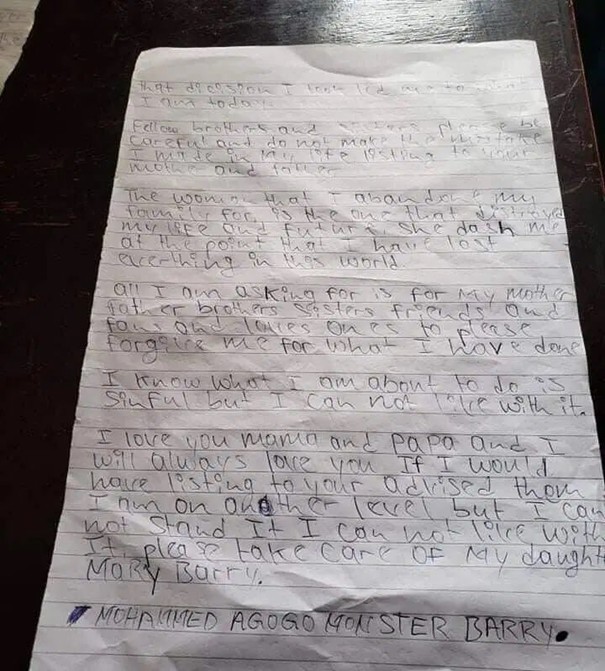 that decision I took led me to what
I am today.
Fellow brothers and sisters please be
careful and do not make the mistake
I made in my life listing to your
mother and father
The woman that I abandone my
family for, is the one that distroyed
my life and future, she dash me
at the point that I have lost
everthing in this world
all I am asking for is for my mother
father brothers sisters friends and
fans and loves ones to please
forgive me for what I have done
I know what I am about to do is
sinful but I can not live with it.
I love you mama and papa and I
will always love you If I would
have listing to your advised them
I am on another level but I can
not stand It I can not live with
It, please take care of my daught
Mary Barry.
MOHAMMED AGOGO MONSTER BARRY.